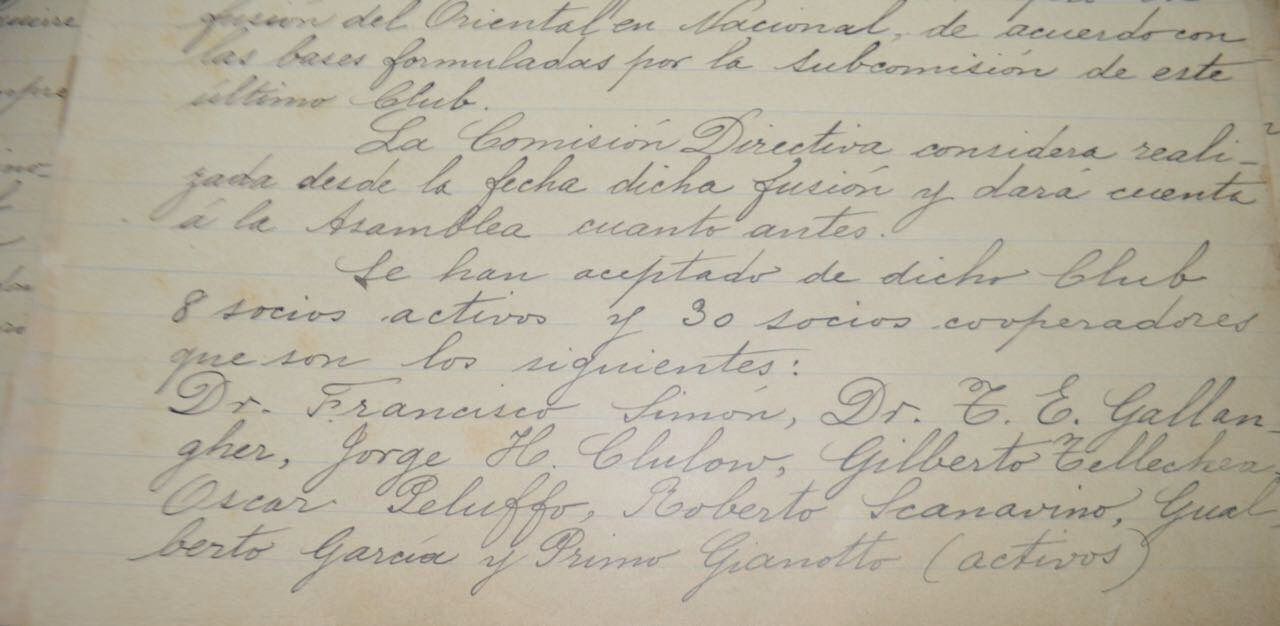 fusión del Oriental en Nacional, de acuerdo con
las bases formuladas por la subcomisión de este
último Club.
La Comisión Directiva considera reali-
zada desde la fecha dicha fusión y dará cuenta
á la Asamblea cuanto antes.
Se han aceptado de dicho Club
8 socios activos y 30 socios cooperadores
que son los siguientes:
Dr. Francisco Simón, Dr. T. E. Gallan-
gher, Jorge H. Clulow, Gilberto Tellechea,
Oscar Peluffo, Roberto Scanavino, Gual
berto García y Primo Gianotto (activos)